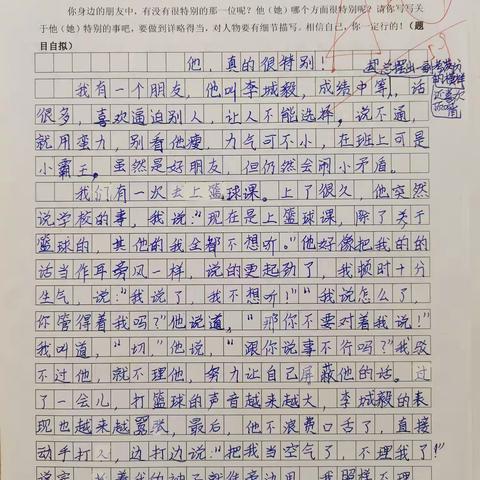 你身边的朋友中，有没有很特别的那一位呢？他（她）哪个方面很特别呢？请你写写关
于他（她）特别的事吧，要做到详略得当，对人物要有细节描写。相信自己，你一定行的！（题
目自拟）
他，真的很特别！
我有一个朋友，他叫李城毅，成绩中等，话
很多，喜欢逼迫别人，让人不能选择。说不通，
就用蛮力，别看他瘦，力气可不小，在班上可是
小霸王。虽然是好朋友，但仍然会闹小矛盾。
我们有一次去上篮球课。上了很久，他突然
说学校的事，我说：“现在是上篮球课，除了关于
篮球的，其他的我全都不想听。”他好像把我的的
话当作耳旁风一样，说的更起劲了，我顿时十分
生气，说：“我说了，我不想听！”“我说怎么了，
你管得着我吗？”他说道，“那你不要对着我说！”
我叫道，“切，”他说，“跟你说事不行吗？”我驳
不过他，就不理他，努力让自己屏蔽他的话。过
了一会儿，打篮球的声音越来越大，李城毅的表
现也越来越嚣张，最后，他不浪费口舌了，直接
动手打人，边打边说：“把我当空气了，不理我了！”